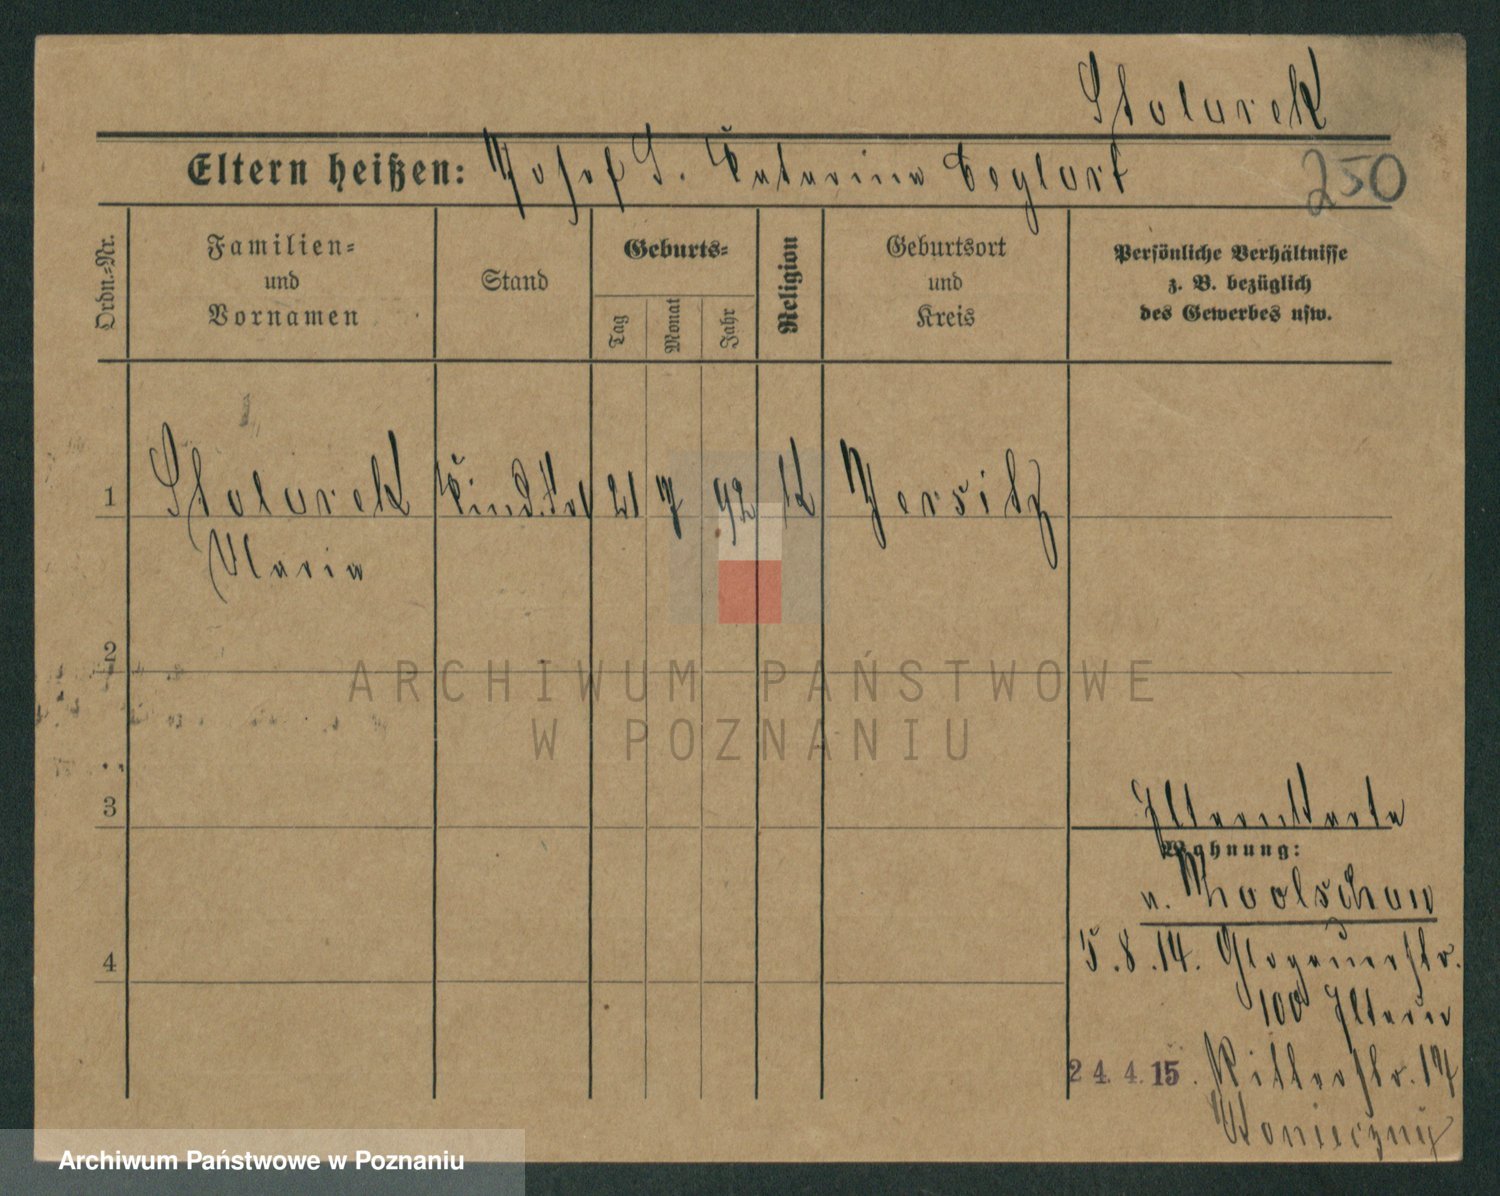 Stolarek
Eltern heißen: Josef S. Katarina Ceglarz
250
Ordn.-Nr.
Familien-
und
Vornamen
Stand
Geburts-
Tag
Monat
Jahr
Religion
Geburtsort
und
Kreis
Persönliche Verhältnisse
z. B. bezüglich
des Gewerbes usw.
1 Stolarek 21 7 92 K Jersitz
Maria
2
ARCHIWUM PAŃSTWOWE
W POZNANIU
3
Wohnung:
4
5.8.14. Glogauerstr.
100 Eltern
24.4.15. Ritterstr. 17
Konieczny
Archiwum Państwowe w Poznaniu